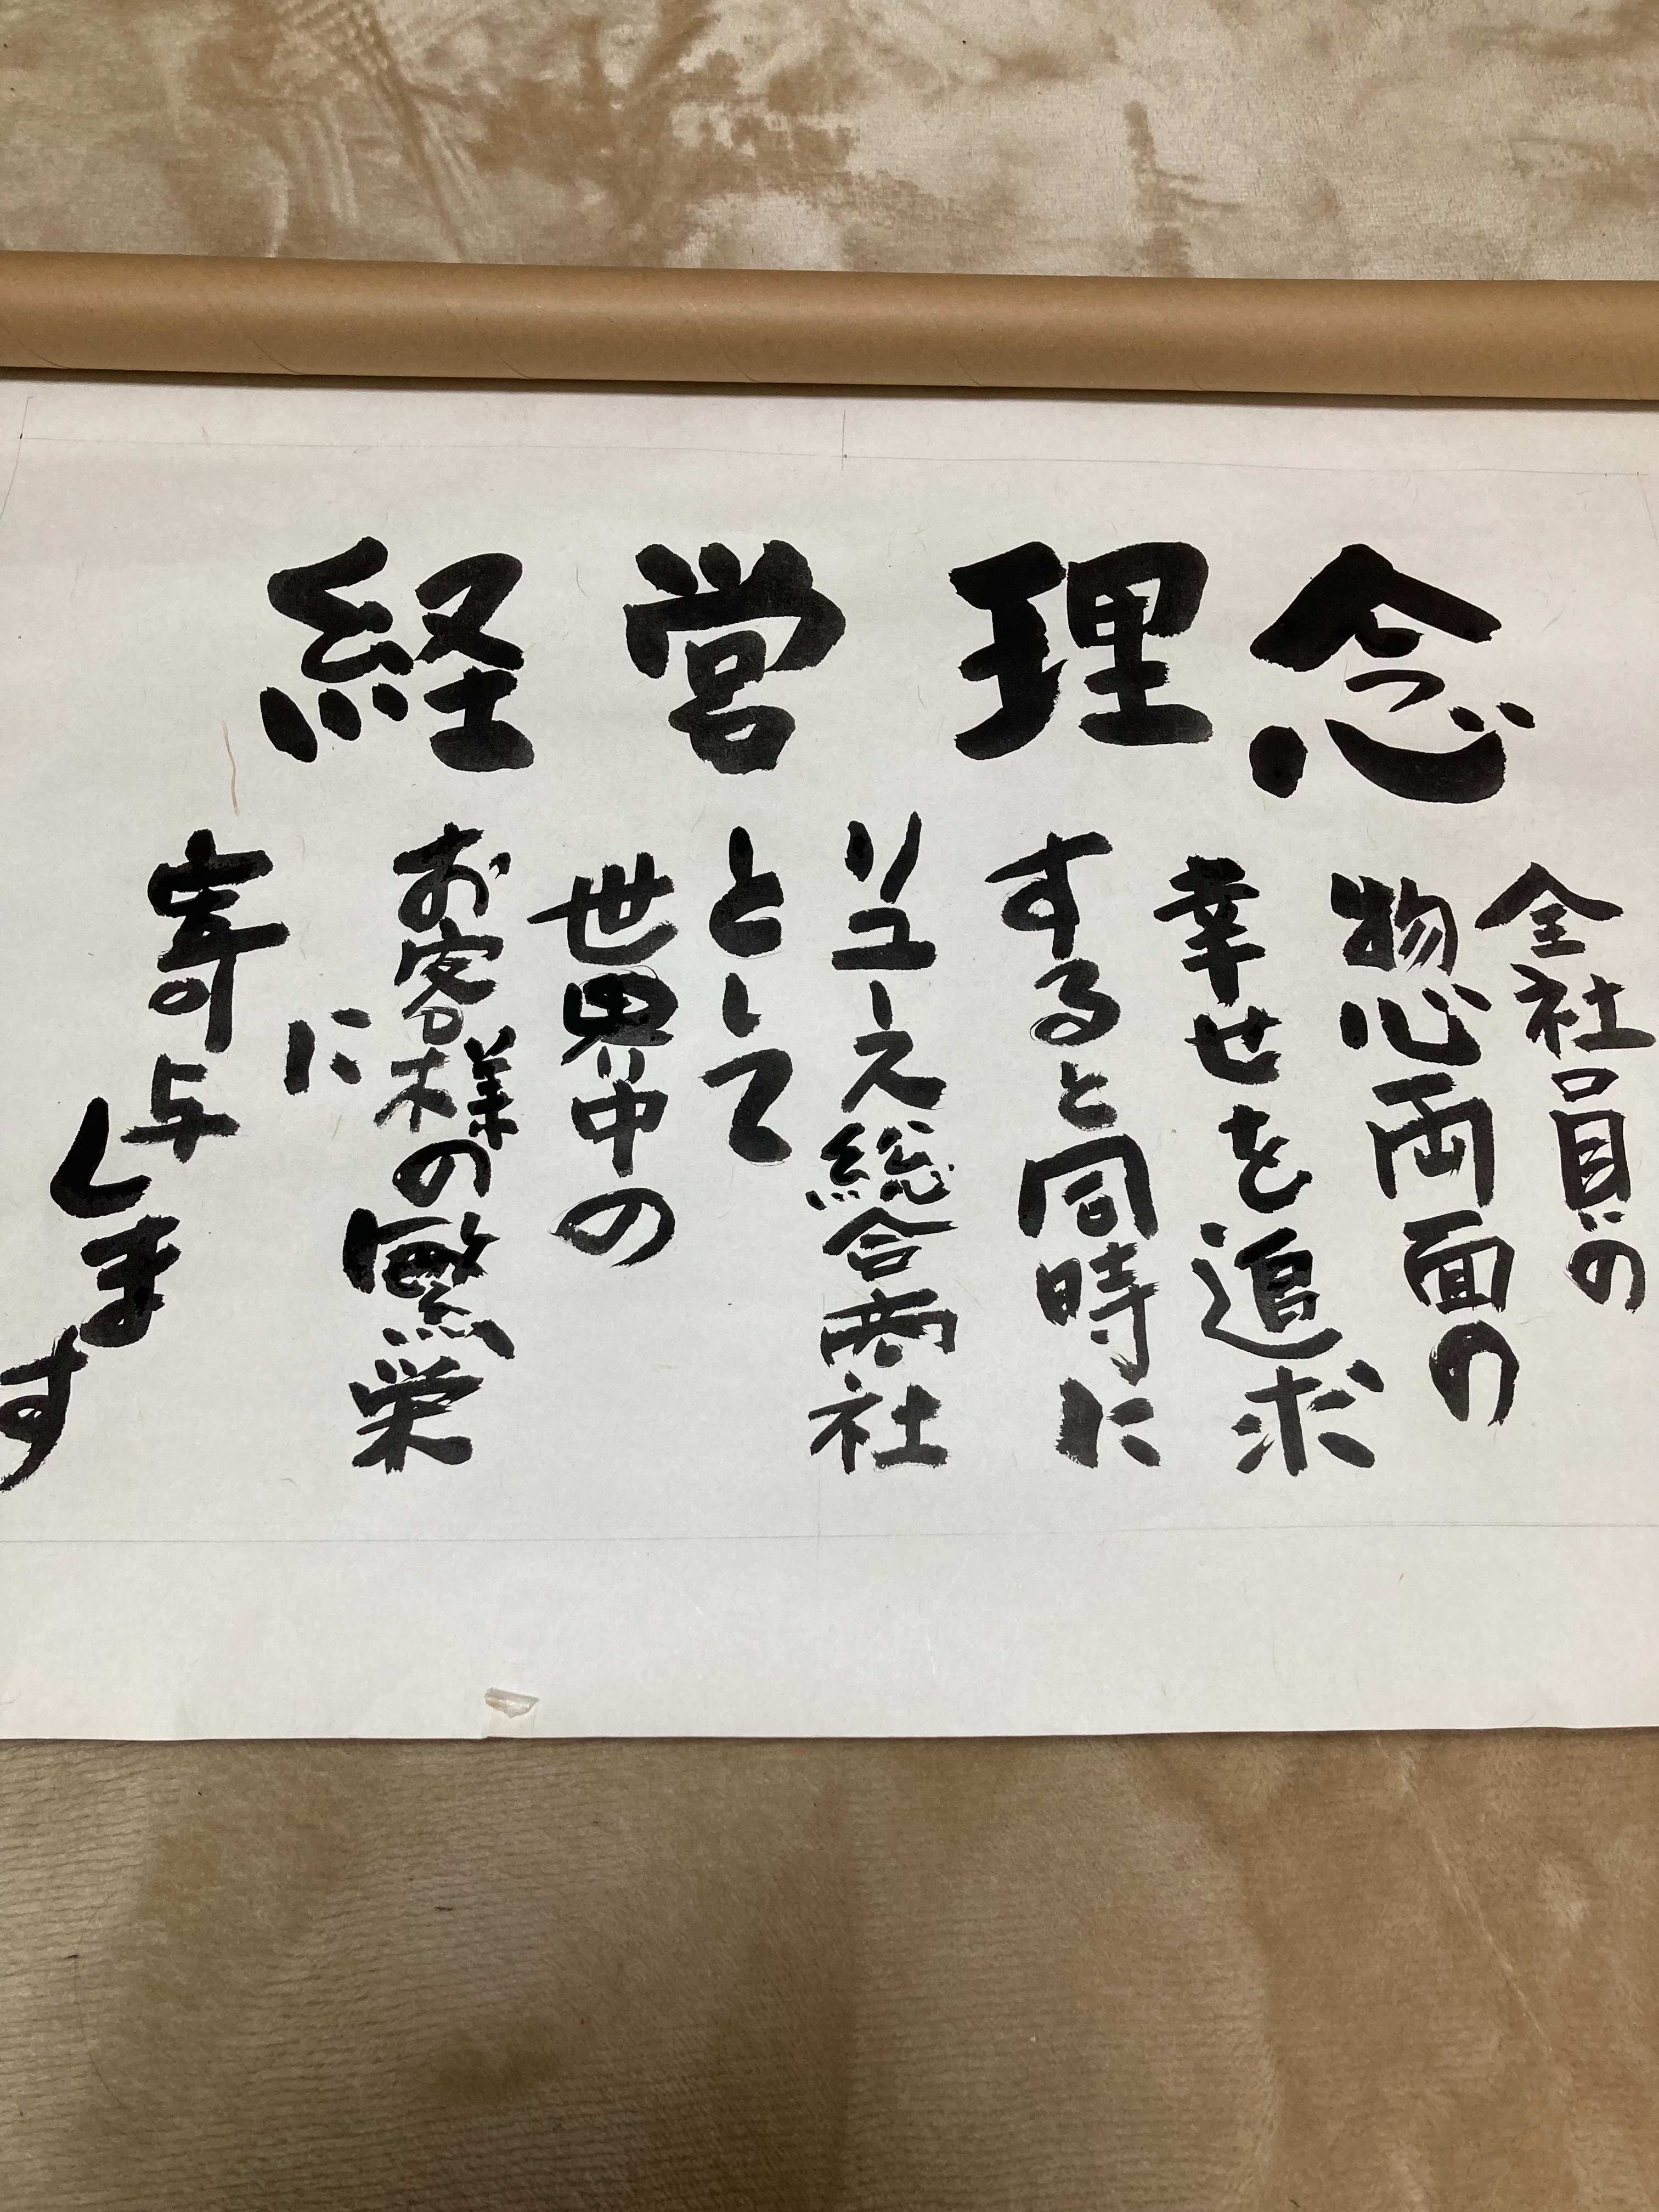 経営理念
全社員の
物心両面の
幸せを追求
すると同時に
リユース総合商社
として
世界中の
お客様の繁栄
に
寄与
します